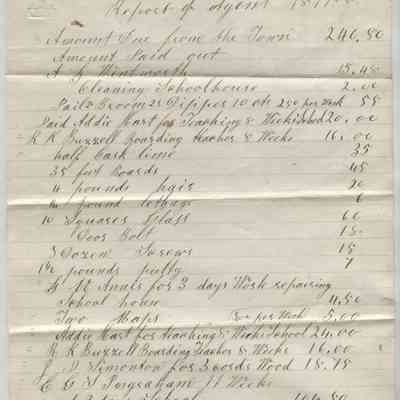 Report of Agent 1877-8
Amount Due from the Town 240.50
Amount Paid out
A J Wentworth 15.48
Cleaning Schoolhouse 2.00
Pail & Broom 25 Dipper 10 cts 58
Paid Addie Hart for Teaching 8 Weeks School 20.00
R K Buzzell Boarding Teacher 8 Weeks 16.00
half Cask lime 35
35 feet Boards 45
4 pounds 20
pound 6
10 Squares Glass 60
Door Bolt 15
3 Dozen Screws 15
1 1/2 pounds putty 7
for 3 days Work repairing
School house 4.50
Two Maps 5.00
Addie Hart for teaching 8 Weeks School 24.00
R K Buzzell Boarding Teacher 8 Weeks 16.00
J D Simonton for 3 cords Wood 18.75
C G Weeks